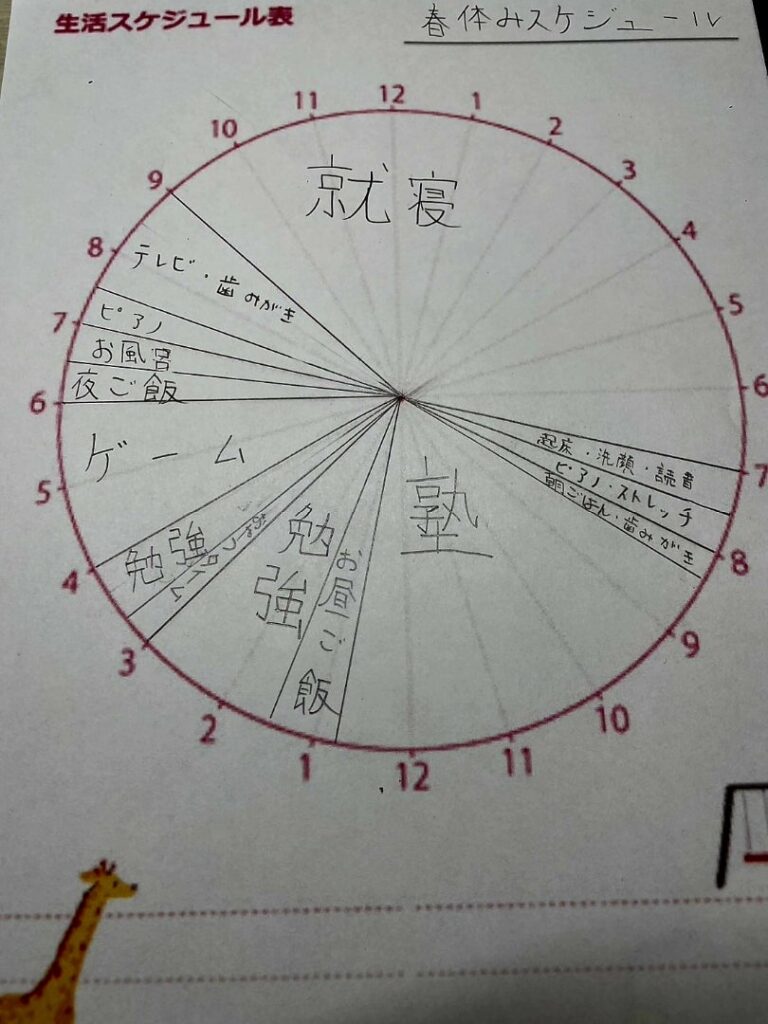 生活スケジュール表
春休みスケジュール
12
1
2
3
4
5
6
7
8
9
10
11
12
1
2
3
4
5
6
7
8
9
10
11
就寝
起床・洗顔・読書
ピアノ・ストレッチ
朝ごはん・歯みがき
塾
お昼ご飯
勉強
おやつタイム
勉強
ゲーム
夜ご飯
お風呂
ピアノ
テレビ・歯みがき